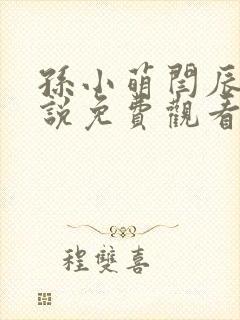 孫小萌閆辰
說免費觀看
程雙喜